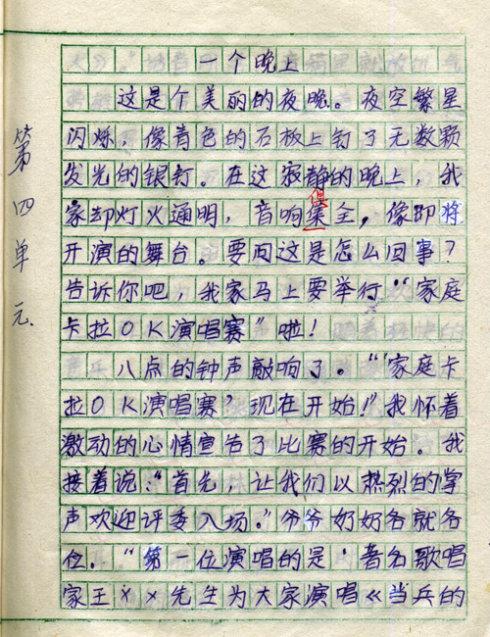 一个晚上
这是个美丽的夜晚。夜空繁星
闪烁，像青色的石板上钉了无数颗
发光的银钉。在这寂静的晚上，我
俱
家却灯火通明，音响集全，像即将
开演的舞台。要问这是怎么回事？
告诉你吧，我家马上要举行“家庭
卡拉OK演唱赛”啦！
八点的钟声敲响了。“‘家庭卡
拉OK演唱赛’现在开始！”我怀着
激动的心情宣告了比赛的开始。我
接着说：“首先，让我们以热烈的掌
声欢迎评委入场。”爷爷奶奶各就各
位。“第一位演唱的是‘著名歌唱
家王××先生为大家演唱《当兵的
第四单元